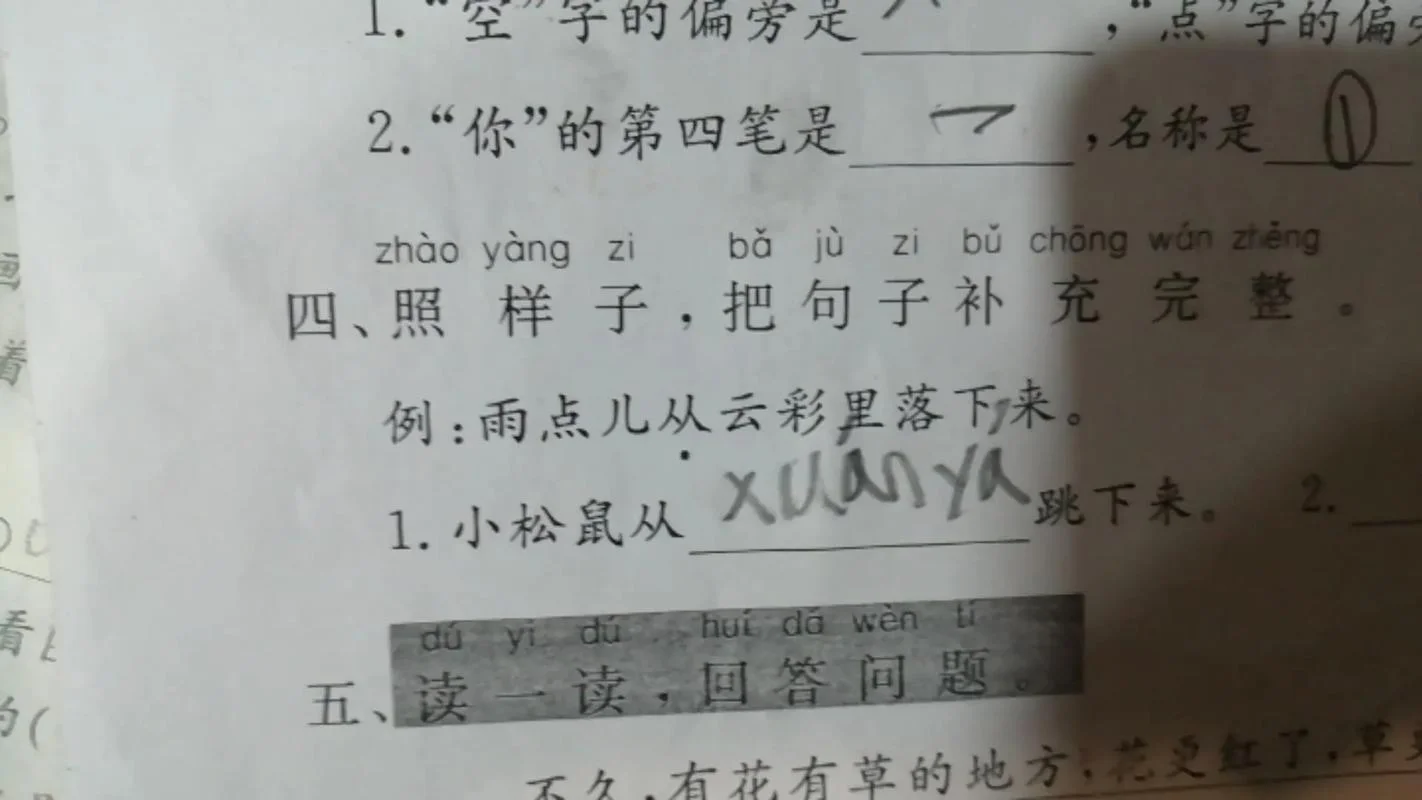 1.“空”字的偏旁是 ，“点”字的偏旁
2.“你”的第四笔是 ㇇ ,名称是
zhào yàng zi bǎ jù zi bǔ chōng wán zhěng
四、照样子，把句子补充完整。
例：雨点儿从云彩里落下来。
1.小松鼠从 xuán yá 跳下来。 2.
dú yi dú huí dá wèn tí
五、读一读，回答问题。
不久，有花有草的地方，花更红了，草更